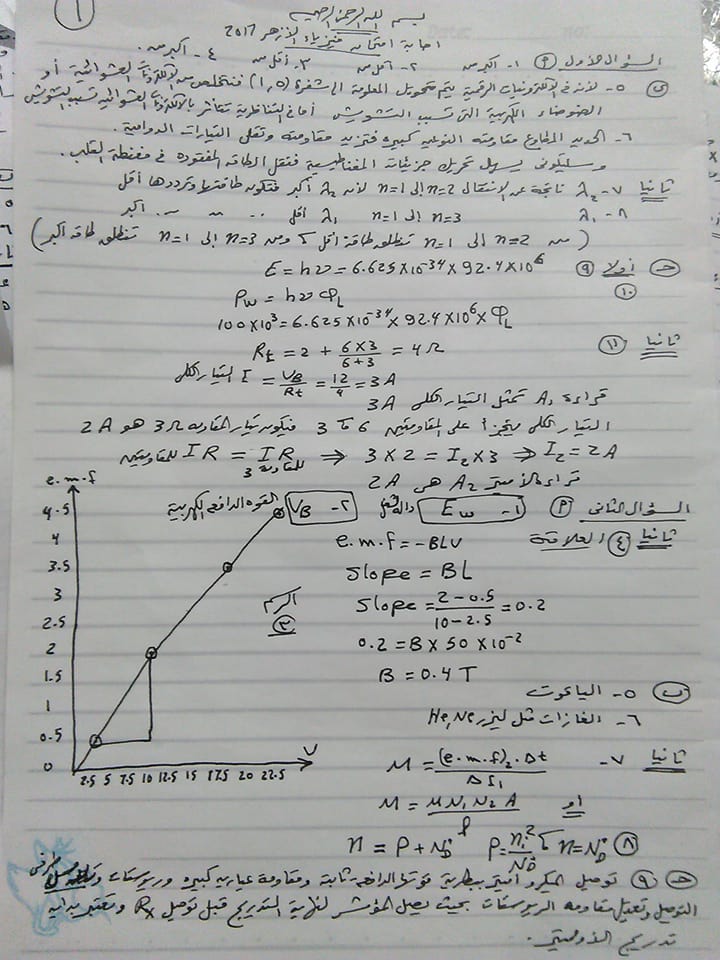 ١
بسم الله الرحمن الرحيم
اجابة امتحان فيزياء الأزهر 2017
السؤال الأول (P) ١- أكبر من ٢- أقل من ٣- أقل من ٤- أكبر من
(ب) ٥- لأنه في الالكترونيات الرقمية يتم تحويل المعلومة إلى شفرة (1,0) فنتخلص من الالكترونات العشوائية أو
الضوضاء الكهربية التى تسبب التشويش أما في التناظرية تتأثر بالالكترونات العشوائية تسبب التشويش
٦- الحديد المطاوع مقاومته النوعية كبيره فتزيد مقاومته وتقل التيارات الدوامية.
وسليكونى يسهل تحريك جزيئات المغناطيسية فتقل الطاقه المفقوده في مغنطة القلب.
ثانيا ٧- λ₂ ناتجة عن الانتقال n=2 إلى n=1 لأن λ₂ أكبر فتكون طاقتها وترددها أقل
٨- λ₁ n=3 إلى n=1 λ₁ أقل .. .. .. أكبر
(من n=2 إلى n=1 تنطلق طاقة أقل ، ومن n=3 إلى n=1 تنطلق طاقه أكبر)
(ج) أولا (٩) E = hν = 6.625×10⁻³⁴ × 92.4×10⁶
(١٠) Pw = hν φL
100×10³ = 6.625×10⁻³⁴ × 92.4×10⁶ × φL
ثانيا (١١) Rt = 2 + (6×3)/(6+3) = 4 Ω
التيار الكلى I = VB/Rt = 12/4 = 3A
قراءة A₁ تمثل التيار الكلى 3A
التيار الكلى يتجزأ على المقاومتين 6 ، 3 فيكون تيار المقاومه 3Ω هو 2A
للمقاومتين IR = IR للمقاومة 3 ⇒ 3×2 = I₂×3 ⇒ I₂ = 2A
قراءة الأميتر A₂ هى 2A
السؤال الثانى (P) ١- Ew دالة الشغل ٢- VB القوه الدافعه الكهربية
ثانيا (٤) العلاقة e.m.f = -BLV
slope = BL
slope = (2-0.5)/(10-2.5) = 0.2
0.2 = B × 50 × 10⁻²
B = 0.4 T
الرسم
(٣)
e.m.f
4.5
4
3.5
3
2.5
2
1.5
1
0.5
0
2.5 5 7.5 10 12.5 15 17.5 20 22.5
V
(ب) ٥- الياقوت
٦- الغازات مثل ليزر He,Ne
ثانيا ٧- M = (e.m.f)₂·Δt/ΔI₁
أو M = μN₁N₂A/ℓ
(٨) n = P + N⁺D P = ni²/N⁺D ، n = N⁺D
(ج) (٩) توصيل الميكرو أميتر ببطارية قوتها الدافعه ثابتة ومقاومة عياريه كبيره وريوستات
التوصيل وتعديل مقاومه الريوستات بحيث يصل المؤشر لنهاية التدريج قبل توصيل Rx وتعتبر بداية
تدريج الأوميتر.